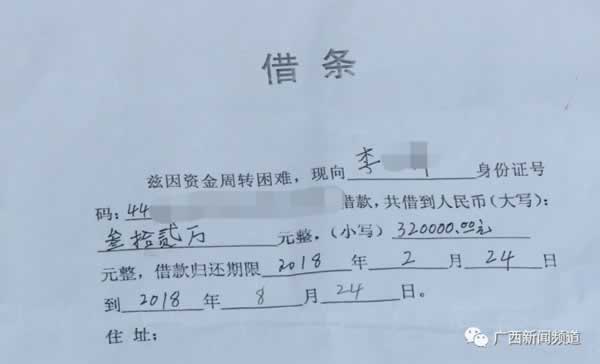 借条
兹因资金周转困难，现向 李 身份证号
码：44 借款，共借到人民币（大写）：
叁拾贰万 元整，（小写）320000.00元
元整，借款归还期限 2018 年 2 月 24 日
到 2018 年 8 月 24 日。
住 址：
广西新闻频道